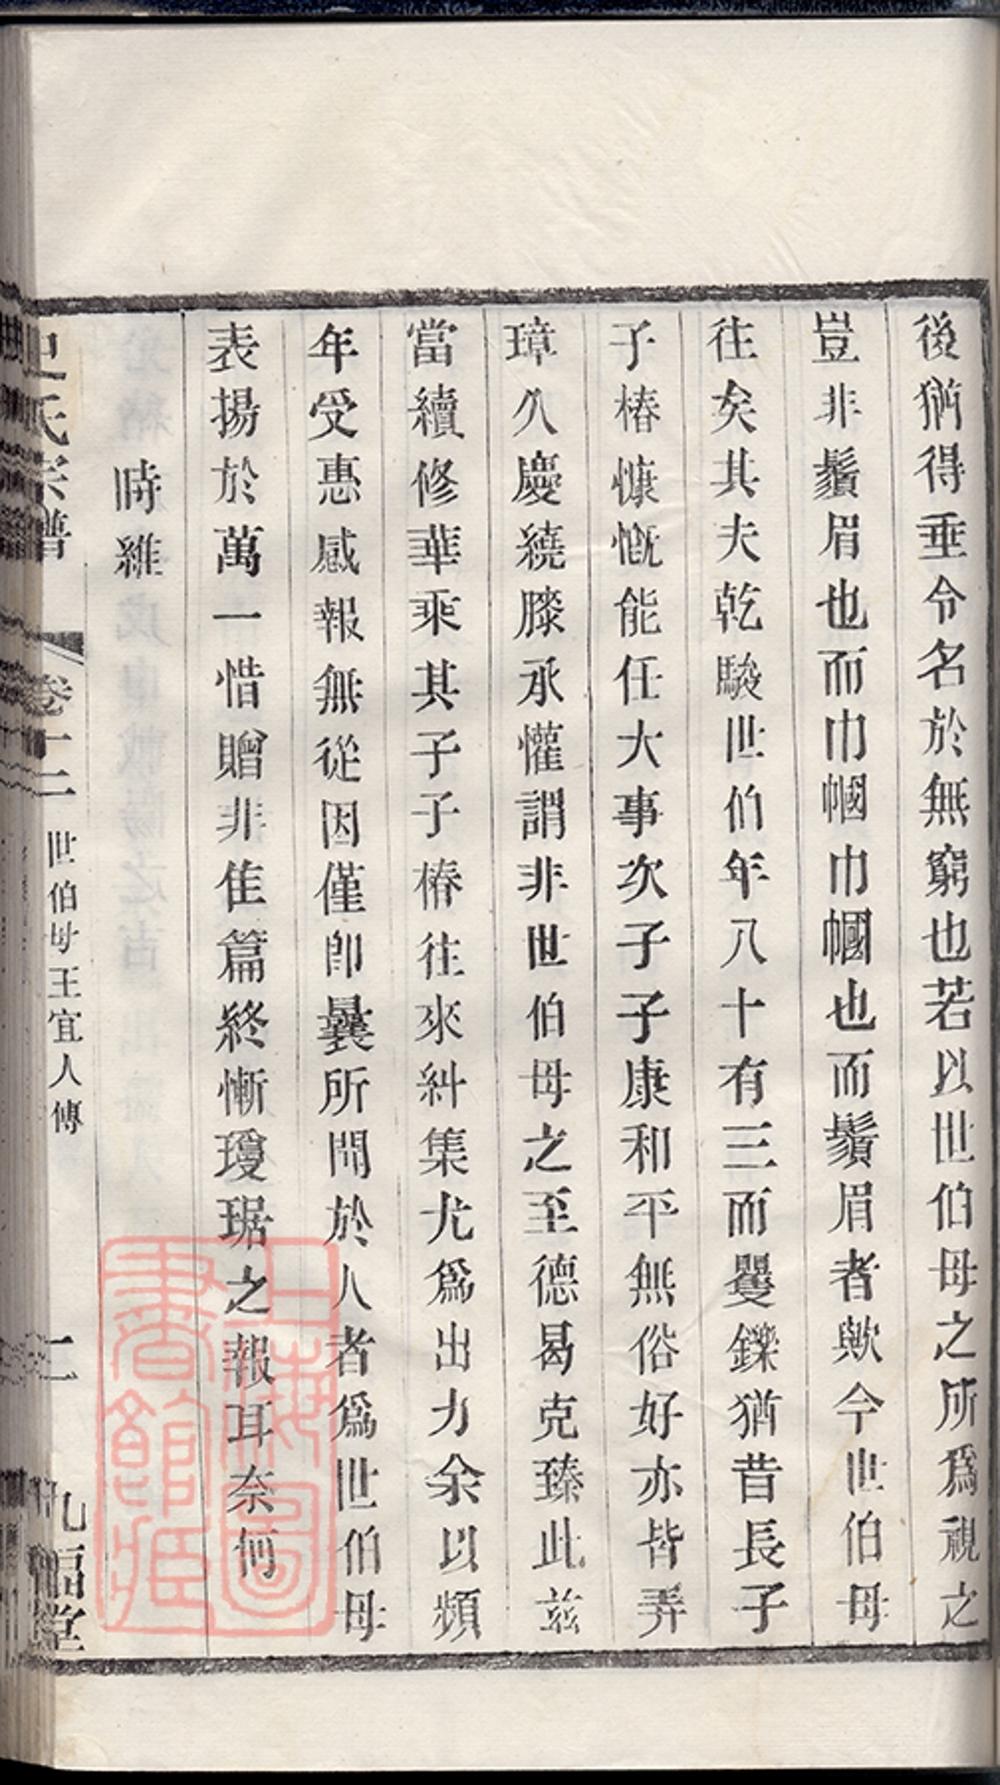 後猶得垂令名於無窮也若以世伯母之所爲視之
豈非鬚眉也而巾幗巾幗也而鬚眉者歟今世伯母
往矣其夫乾駿世伯年八十有三而矍鑠猶昔長子
子椿慷慨能任大事次子子康和平無俗好亦皆弄
璋久慶繞膝承懽謂非世伯母之至德曷克臻此茲
當續修華乘其子子椿往來糾集尤爲出力余以頻
年受惠感報無從因僅卽曩所聞於人者爲世伯母
表揚於萬一惜贈非隹篇終慚瓊琚之報耳奈何
時維
史氏宗譜 卷十二 世伯母王宜人傳 二 九福堂
上海圖書館藏